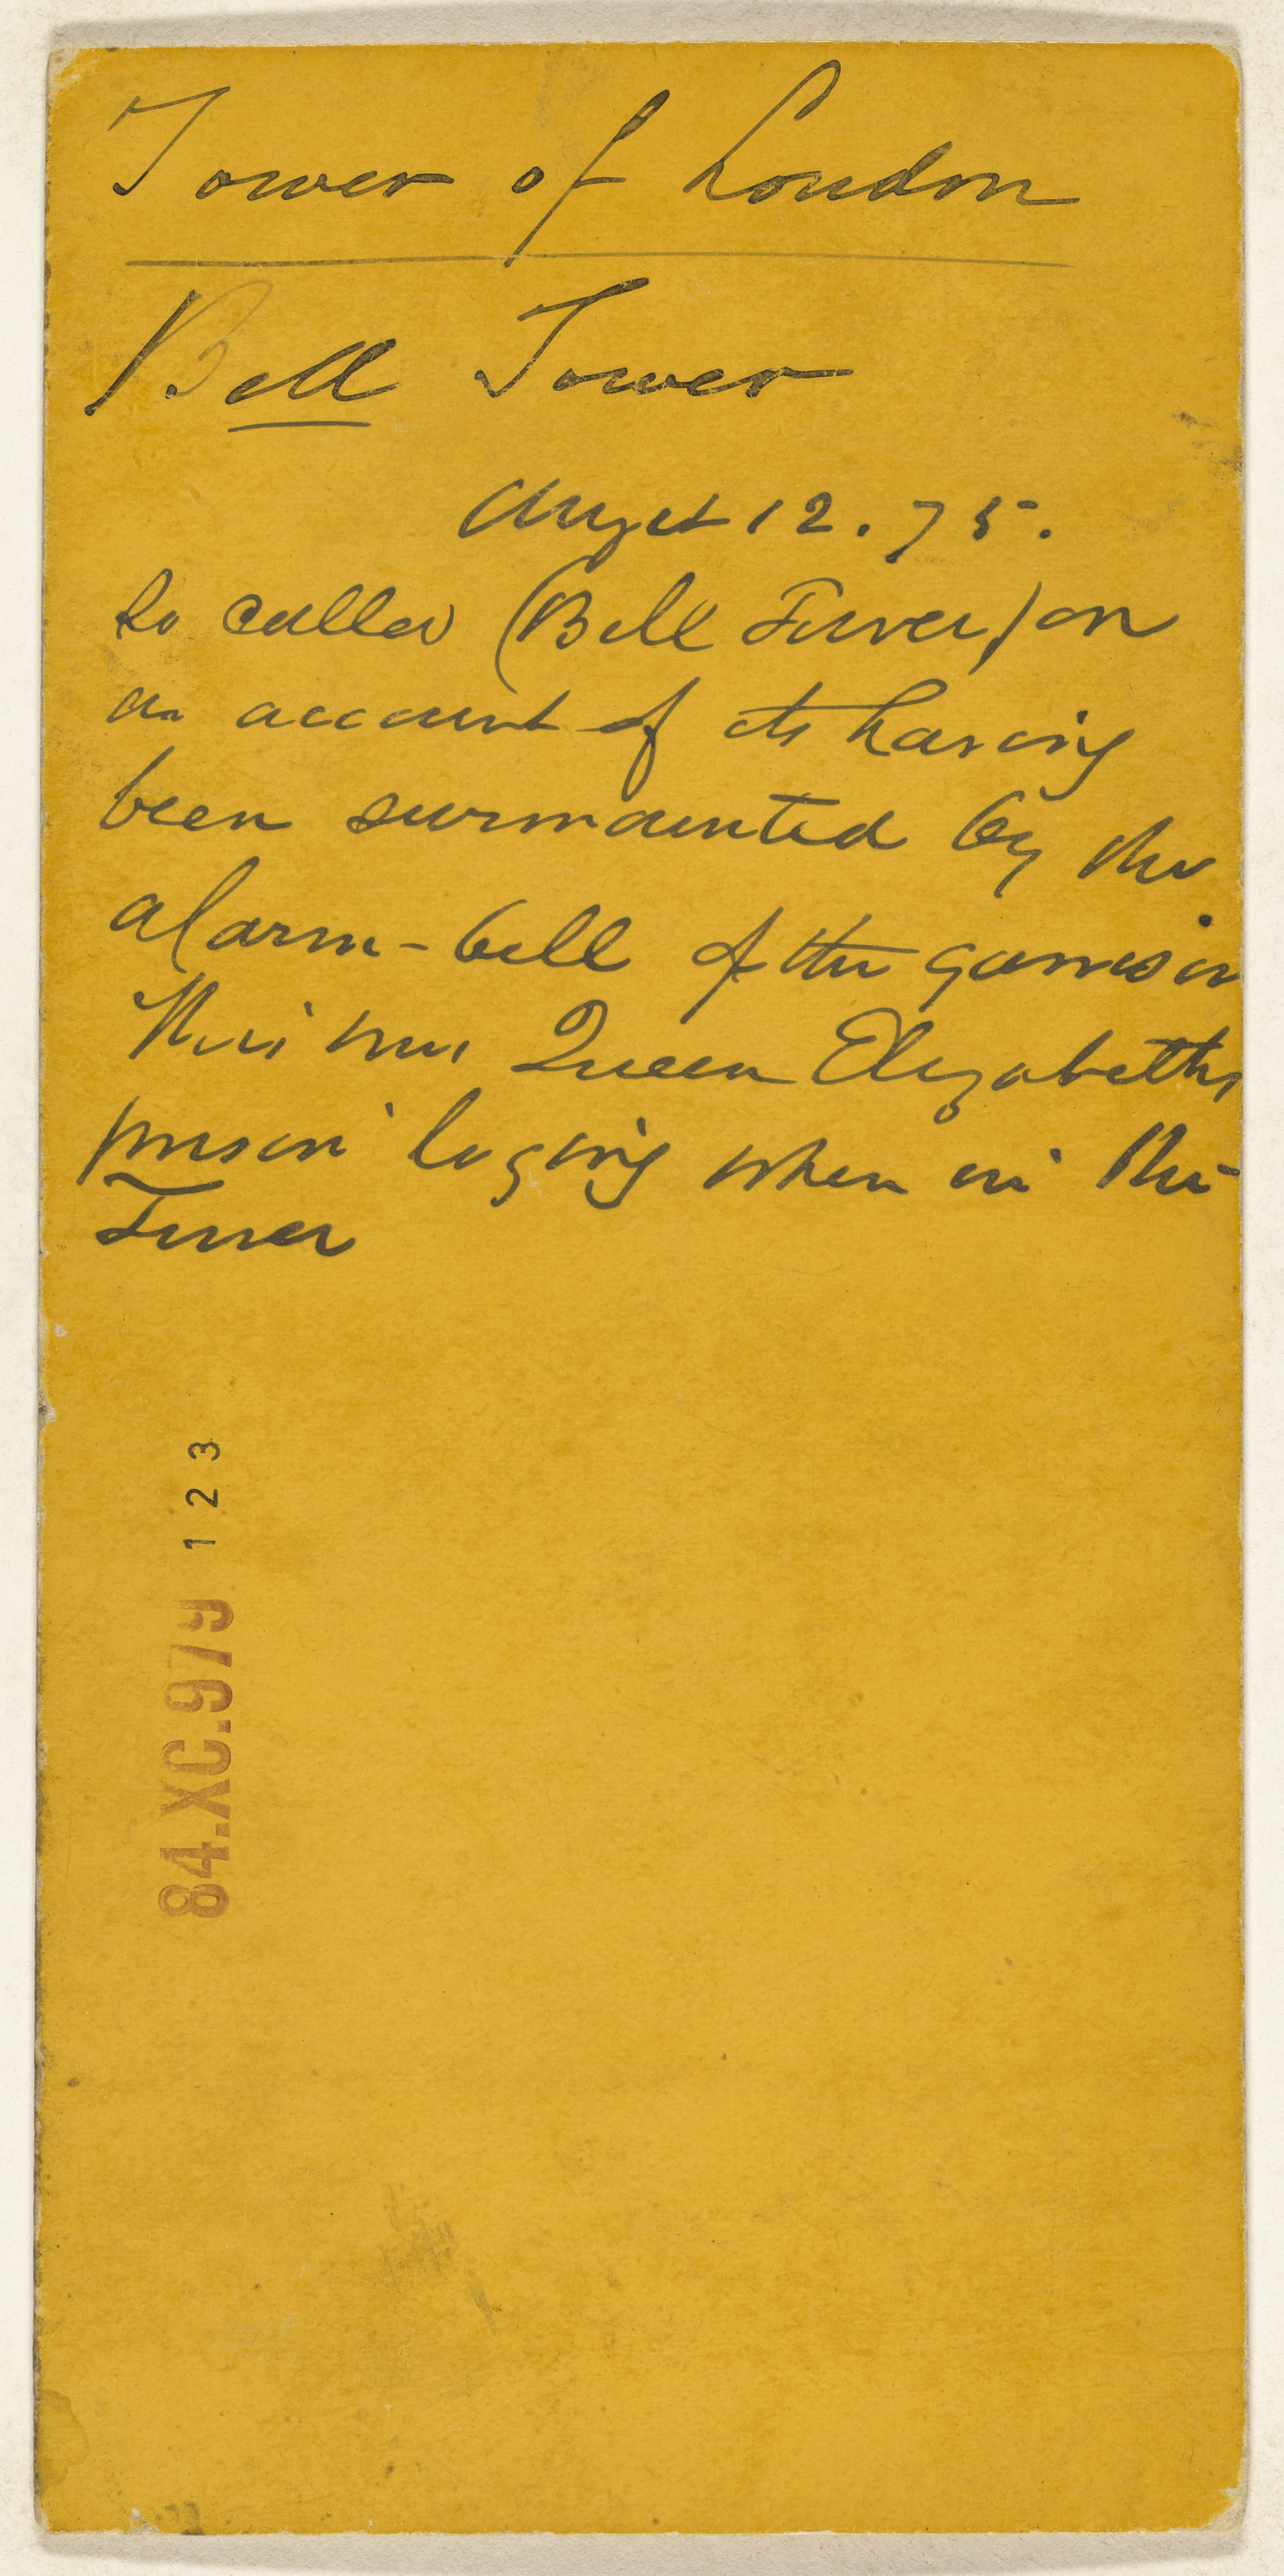 Tower of London
Bell Tower
August 12. 75.
So called (Bell Tower) on
an account of its having
been surmounted by the
alarm-bell of the garrison
This was Queen Elizabeths
prison loging when in the
Tower
84.XC.979 123